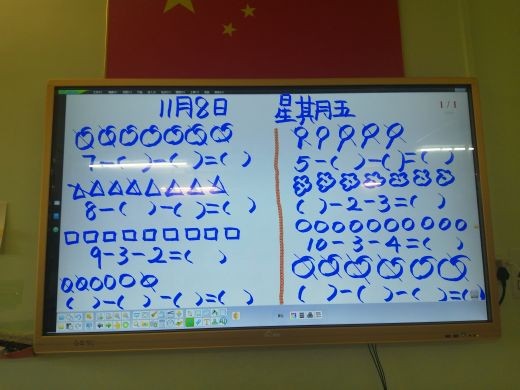 11月8日 星期五
1/1
7-( )-( )=( )
8-( )-( )=( )
9-3-2=( )
( )-( )-( )=( )
5-( )-( )=( )
( )-2-3=( )
10-3-4=( )
( )-( )-( )=( )